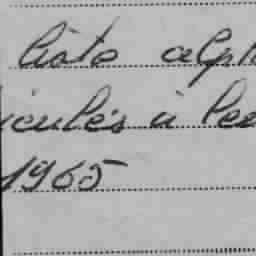 liste alph
iculés à lee
1965